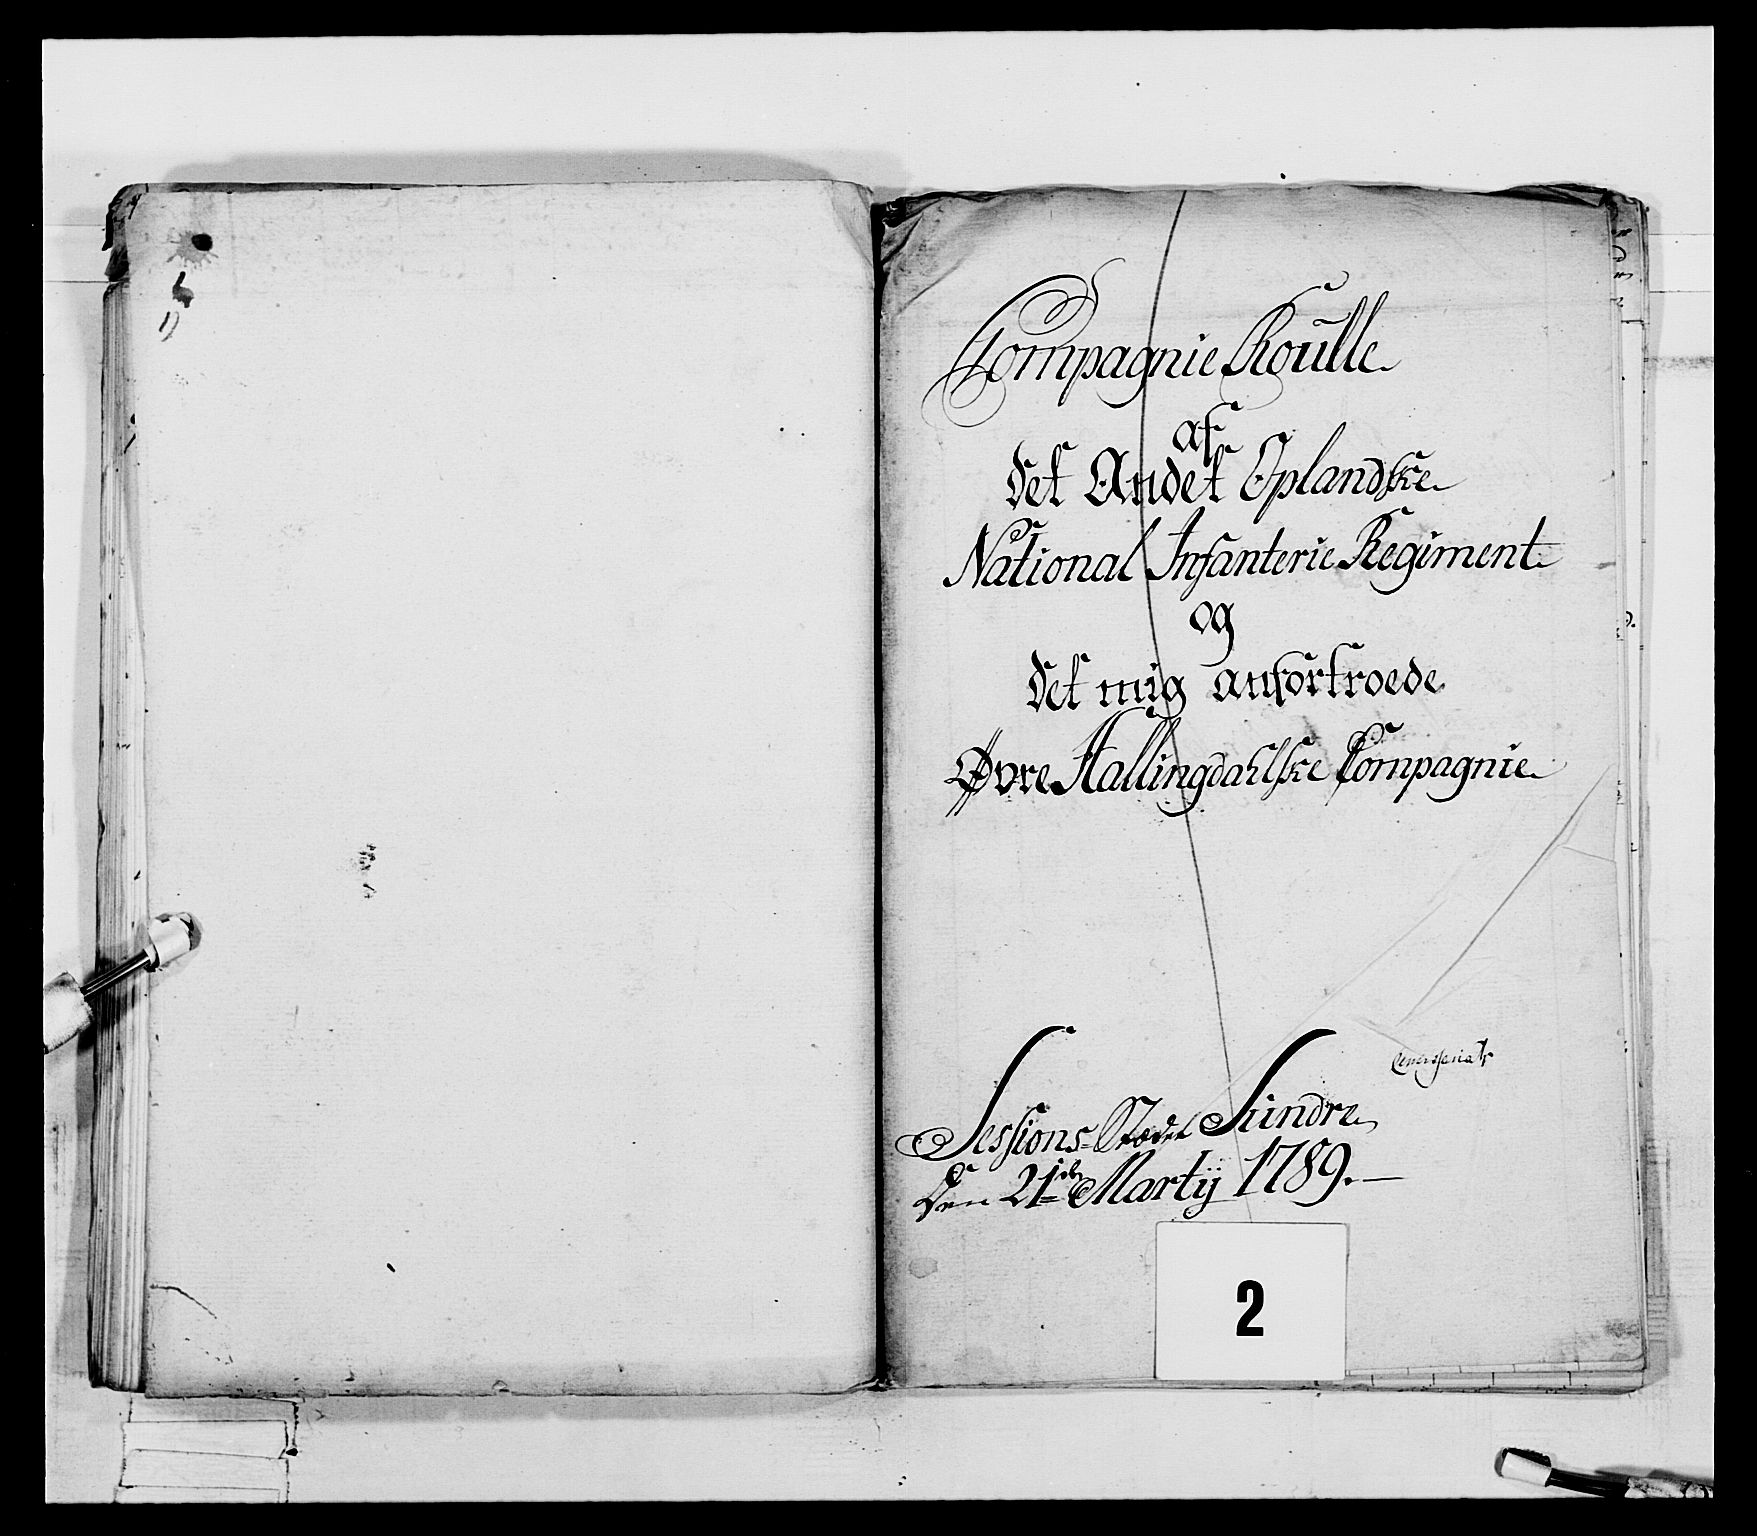 Compagnie Roulle
af
Det Andet Oplandske
National Infanterie Regiment
og
Det mig anfortroede
Øvre Hallingdahlske Compagnie
Sessions-Stædet Sundre
Den 21de Martij 1789.
2